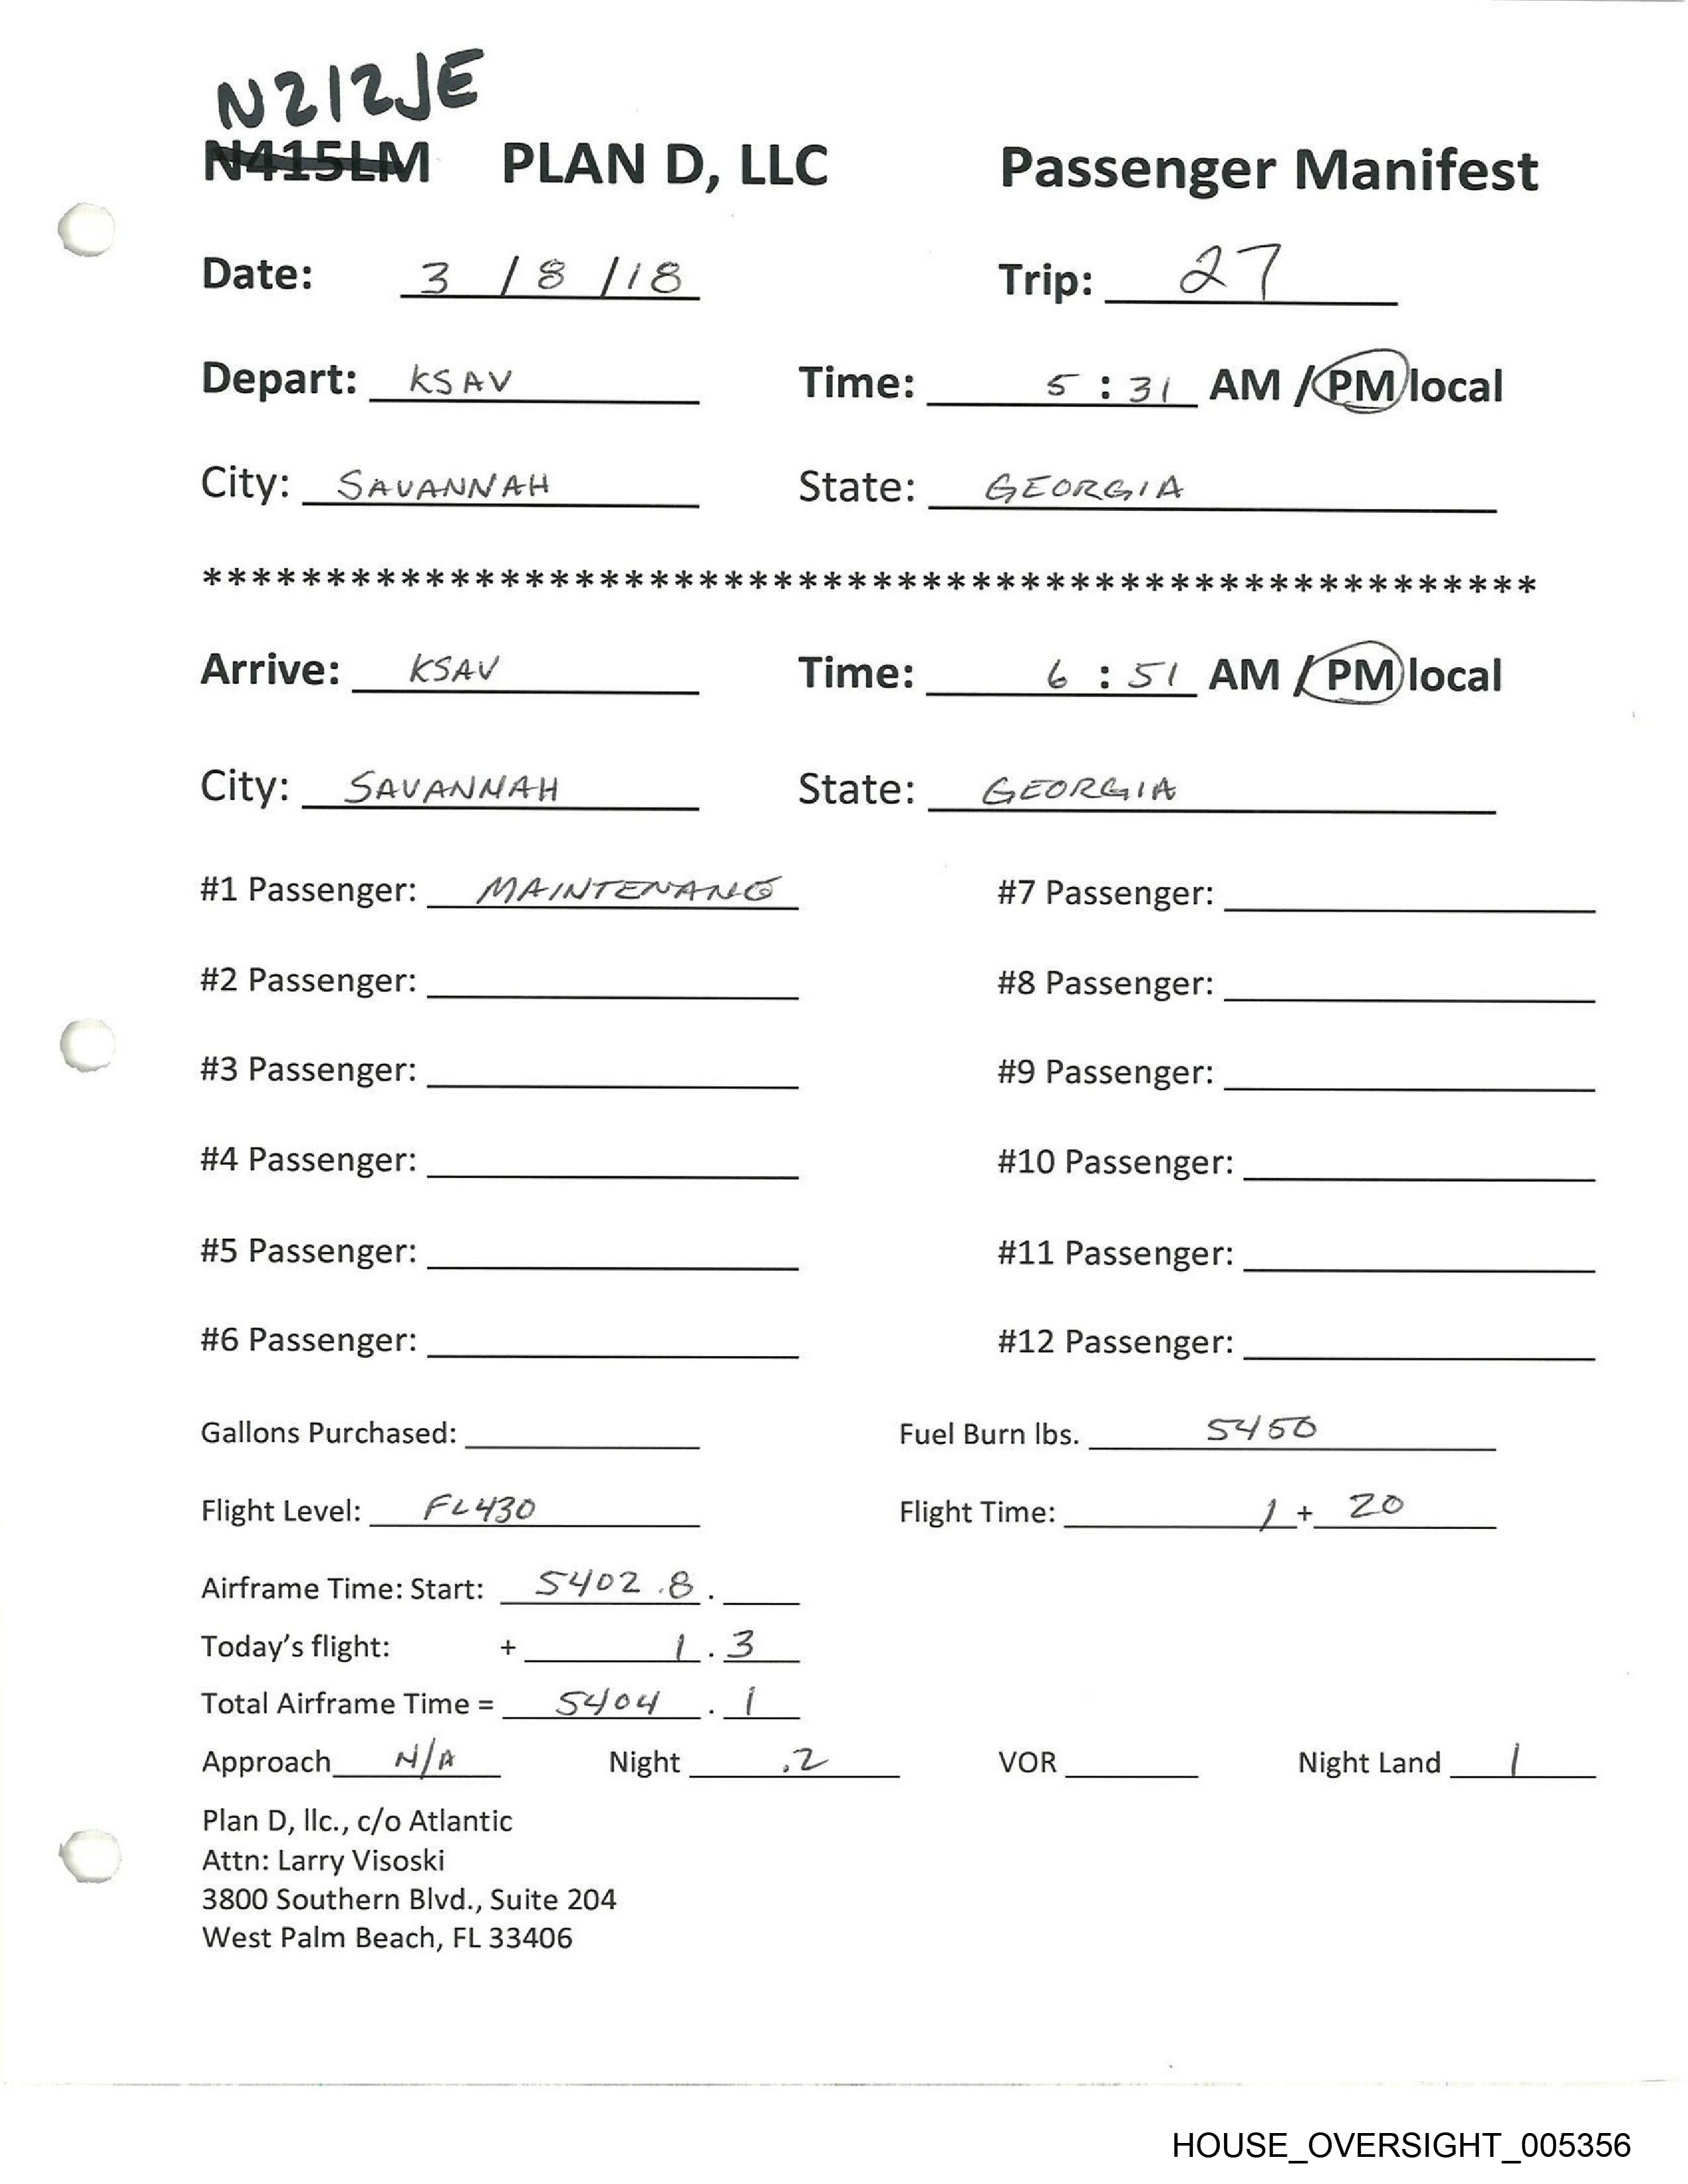 N212JE
N415LM PLAN D, LLC Passenger Manifest
Date: 3 / 8 / 18 Trip: 27
Depart: KSAV Time: 5 : 31 AM / PM local
City: SAVANNAH State: GEORGIA
******************************************************
Arrive: KSAV Time: 6 : 51 AM / PM local
City: SAVANNAH State: GEORGIA
#1 Passenger: MAINTENANCE #7 Passenger:
#2 Passenger: #8 Passenger:
#3 Passenger: #9 Passenger:
#4 Passenger: #10 Passenger:
#5 Passenger: #11 Passenger:
#6 Passenger: #12 Passenger:
Gallons Purchased: Fuel Burn lbs. 5450
Flight Level: FL430 Flight Time: 1 + 20
Airframe Time: Start: 5402.8 .
Today's flight: + 1 . 3
Total Airframe Time = 5404 . 1
Approach N/A Night .2 VOR Night Land 1
Plan D, llc., c/o Atlantic
Attn: Larry Visoski
3800 Southern Blvd., Suite 204
West Palm Beach, FL 33406
HOUSE_OVERSIGHT_005356